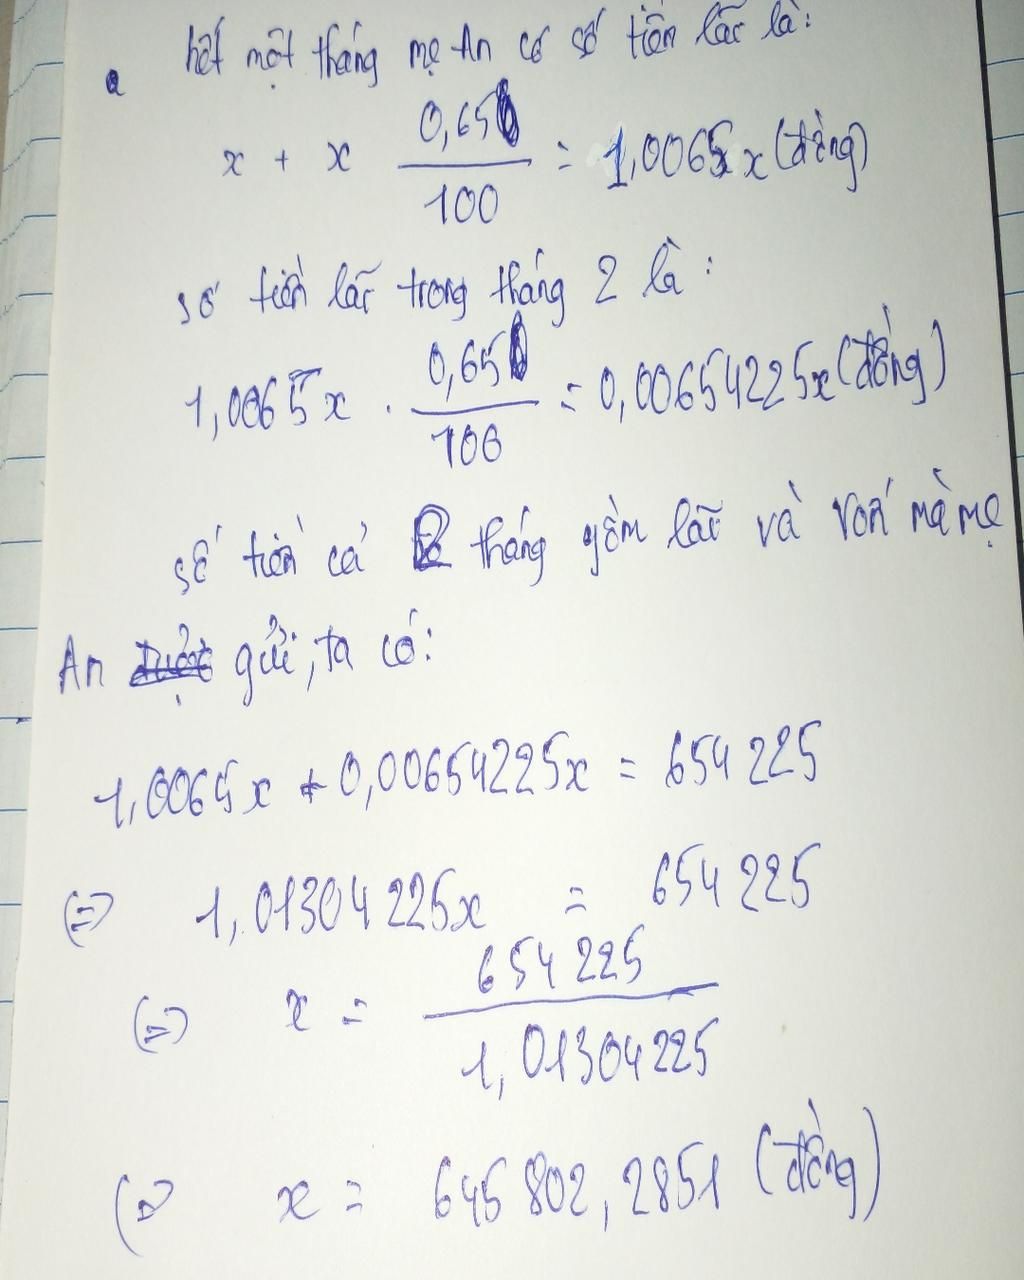 hết một tháng mẹ An có số tiền lãi là:
x + x 0,65 / 100 = 1,0065x (đồng)
số tiền lãi trong tháng 2 là:
1,0065x . 0,65 / 100 = 0,00654225x (đồng)
số tiền cả 2 tháng gồm lãi và vốn mà mẹ
An gửi, ta có:
1,0065x + 0,00654225x = 654 225
(=) 1,01304225x = 654 225
(=) x = 654 225 / 1,01304225
(=) x = 645 802,2851 (đồng)